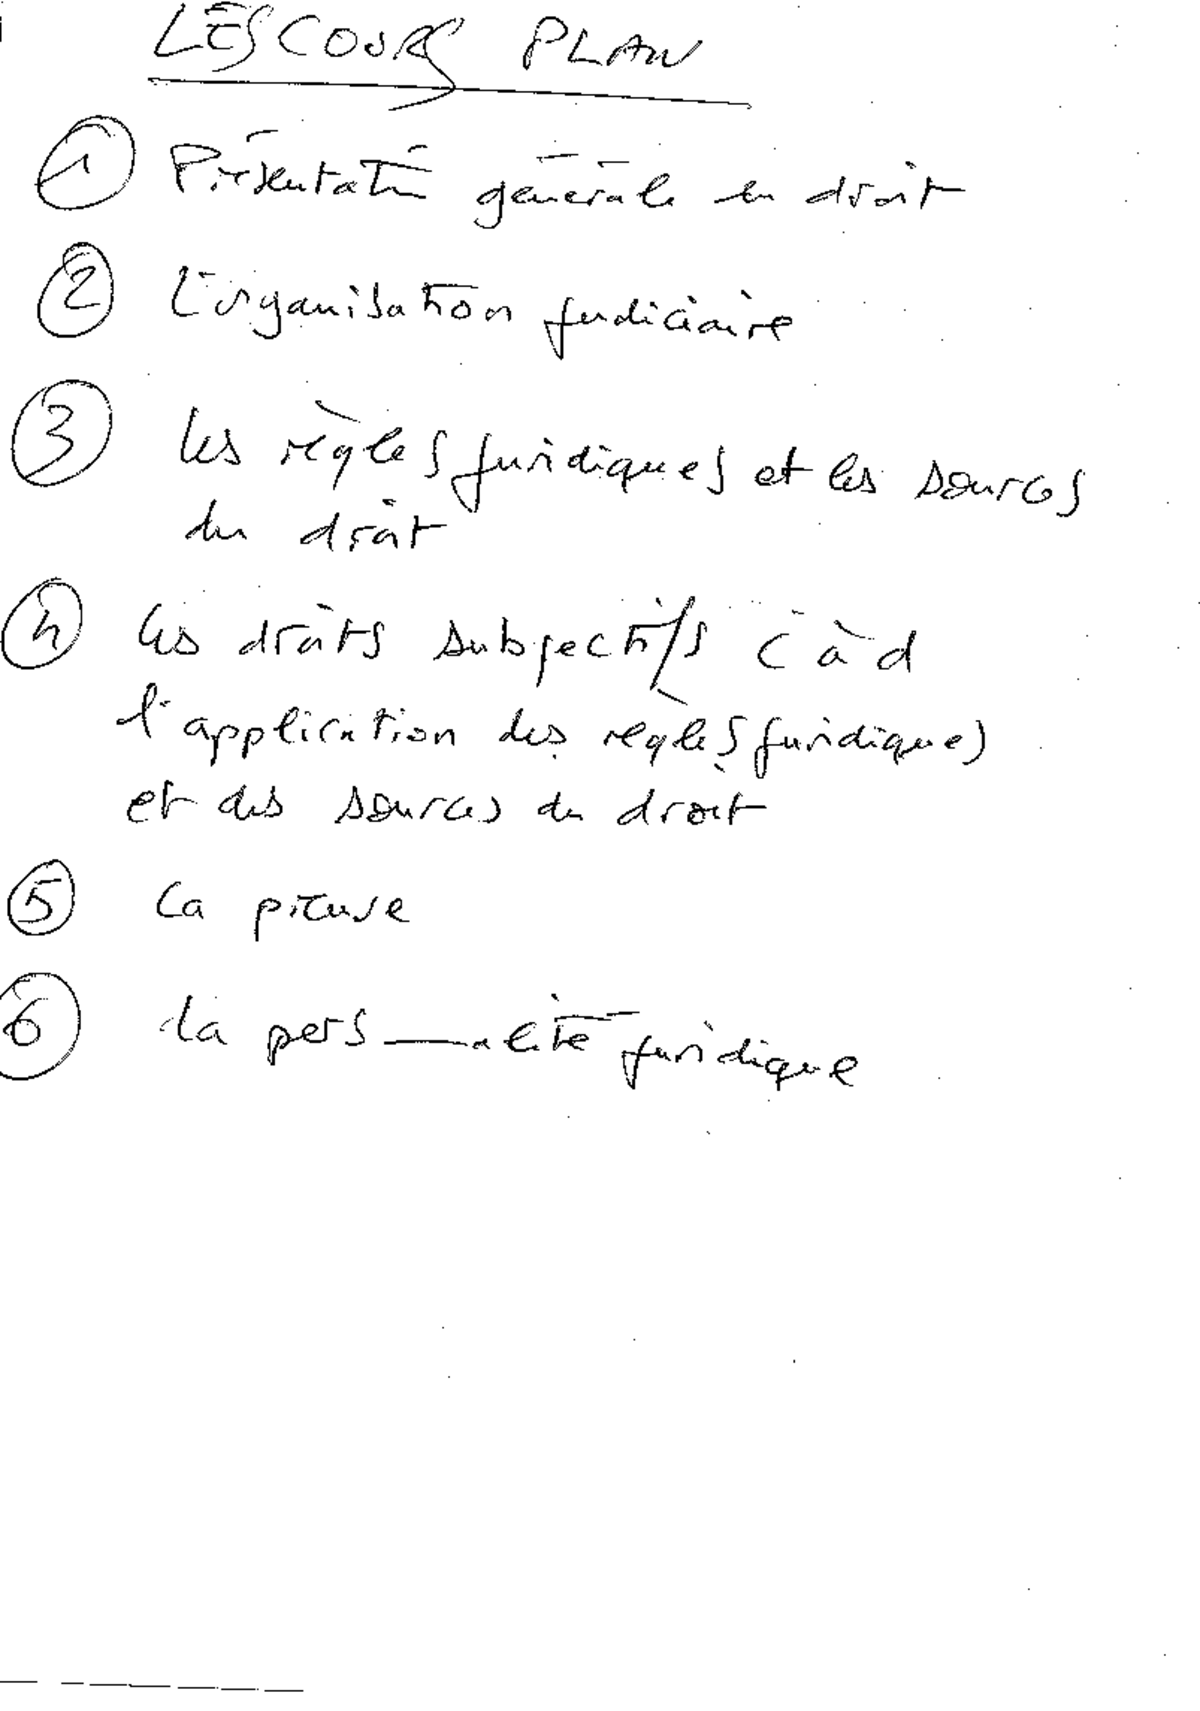 LES COURS PLAN
1 Présentati générale du droit
2 L'organisation judiciaire
3 les règles juridiques et les sources
du droit
4 les droits subjectifs c à d
l'application des règles juridiques
et des sources du droit
5 La preuve
6 La personnalité juridique